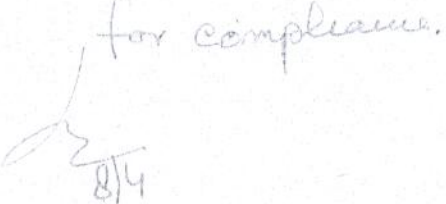 for compliance.
8/4